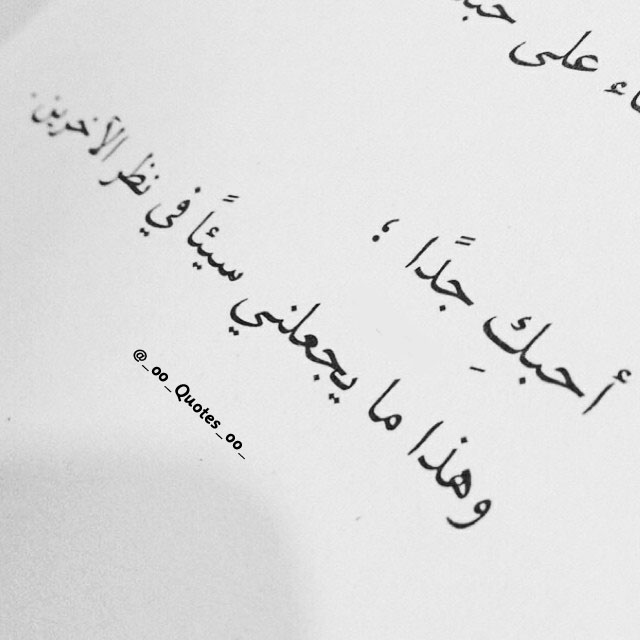 على
أحبكِ جدًا ؛
وهذا ما يجعلني سيئًا في نظر الآخرين.
@_oo_Quotes_oo_